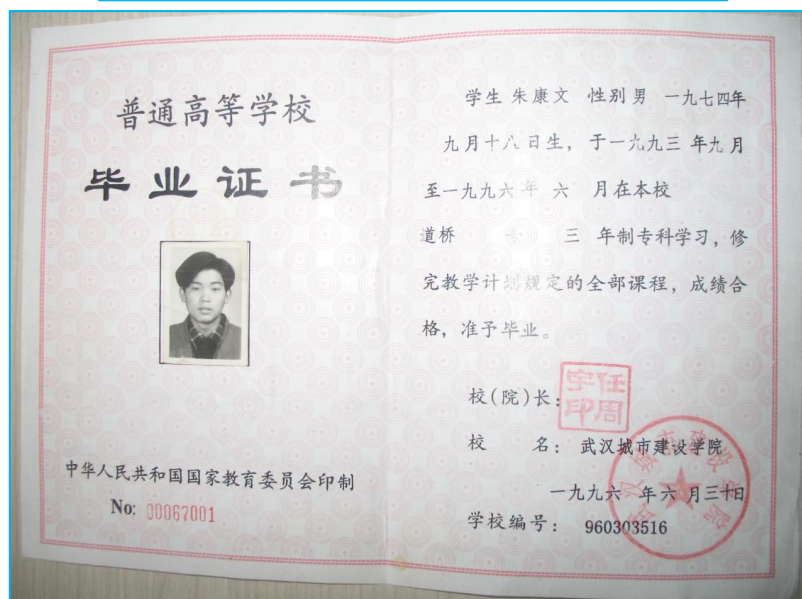 普通高等学校
毕业证书
中华人民共和国国家教育委员会印制
No: 00067001
学生 朱康文 性别 男 一九七四年
九月十八日生，于一九九三年九月
至一九九六年 六 月在本校
道桥 三 年制专科学习，修
完教学计划规定的全部课程，成绩合
格，准予毕业。
校(院)长：
校 名：武汉城市建设学院
一九九六 年 六 月三十日
学校编号：960303516